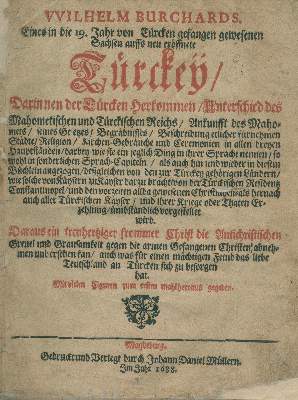 WILHELM BURCHARDS.
Eines in die 19. Jahr von Türcken gefangen gewesenen
Sachsen auffs neu eröffnete
Türckey/
Darinnen der Türcken Herkommen/ Unterschied des
Mahometischen und Türckischen Reichs/ Ankunfft des Maho-
mets/ seines Gesetzes/ Begräbnisses/ Beschreibung etlicher fürnehmen
Städte/ Religion/ Kirchen-Gebräuche und Ceremonien in allen dreyen
Hauptständen/ darbey wie sie ein jeglich Ding in ihrer Sprach nennen/ so
wohl in sonderlichen Sprach-Capiteln/ als auch hin und wieder in diesem
Büchlein angezogen/ desgleichen von den zur Türckey gehörigen Ländern/
wie solche von Käysern zu Käyser darzu bracht von der Türckischen Residentz
Constantinopel/ und den vorzeiten allda gewesenen Christen als hernach
auch aller Türckischen Käyser/ und ihrer Kriege oder Thaten Er-
zehlung/ umbständlich vorgestellet
wird.
Daraus ein treuhertziger frommer Christ die Antichristischen
Greuel und Grausamkeit gegen die armen Gefangenen Christen/ abneh-
men und ersehen kan/ auch was für einen mächtigen Feind das liebe
Teutschland an Türcken sich zu besorgen
hat.
Mit vielen Figuren zum ersten mahl heraus gegeben.
Magdeburg,
Gedruckt und Verlegt durch Johann Daniel Müllern.
Im Jahr 1688.